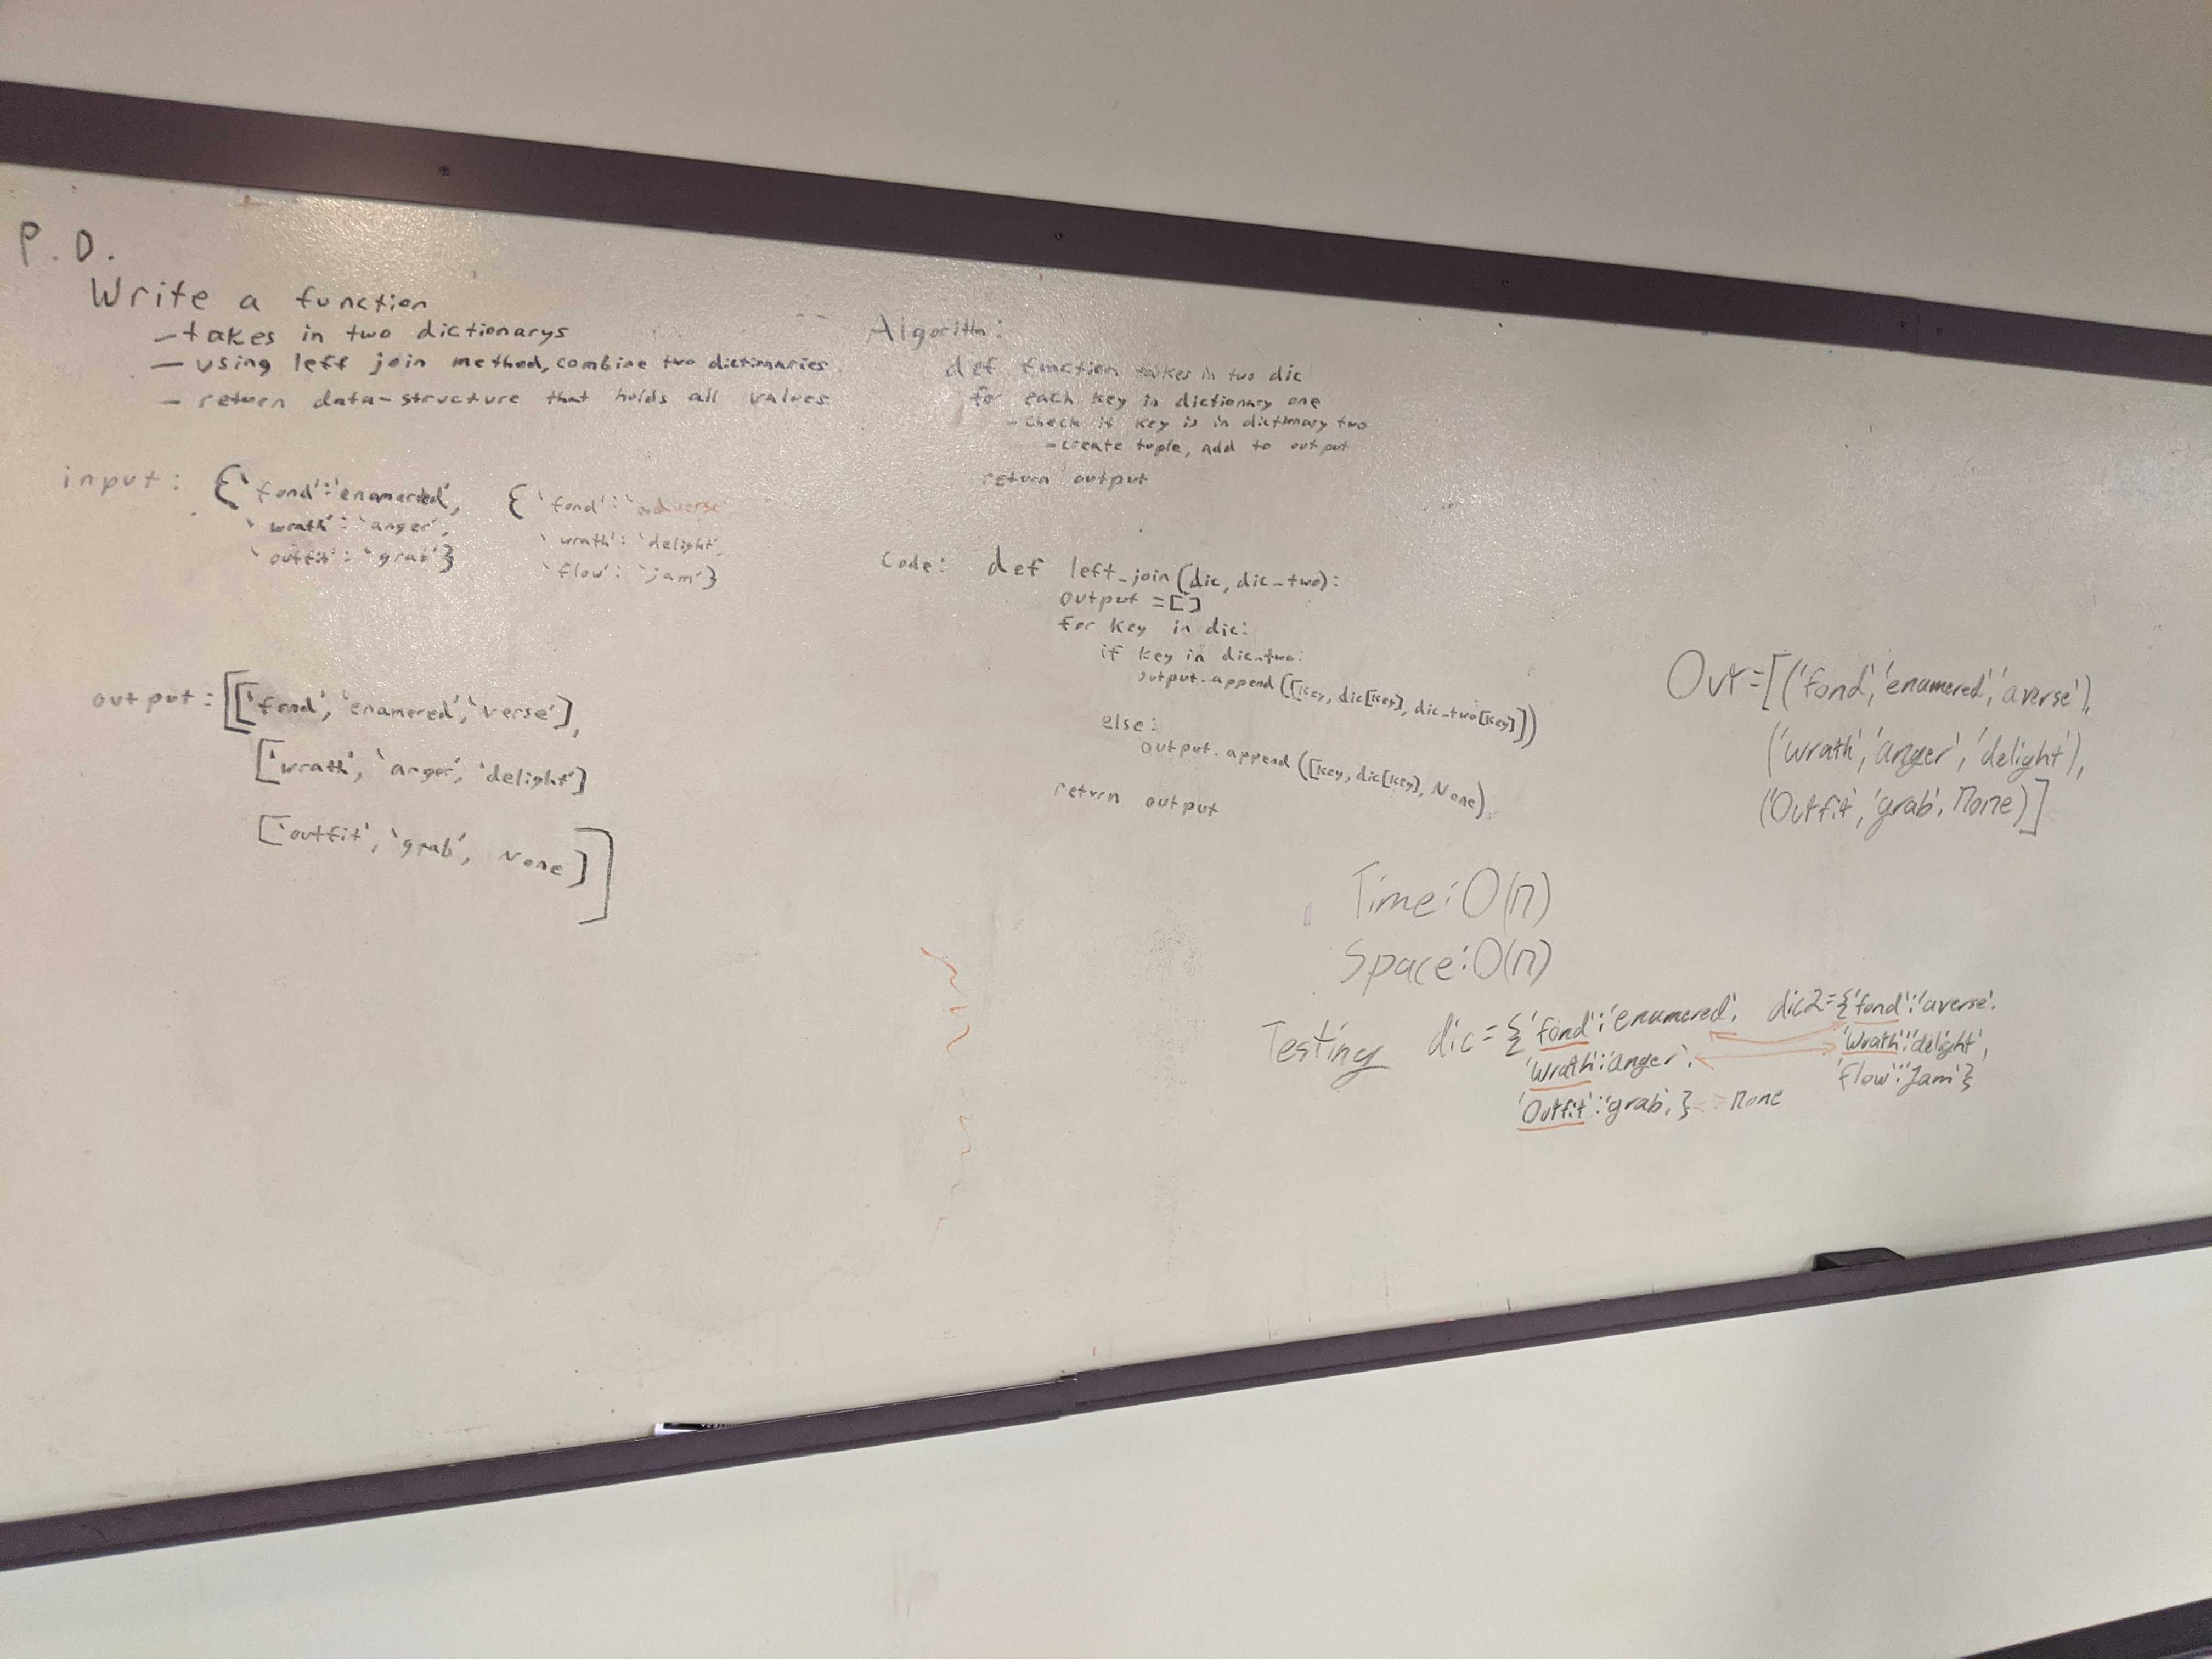 P.D.
Write a function
- takes in two dictionarys
- using left join method, combine two dictionaries
- return data-structure that holds all values
input: {'fond':'enamerded', {'fond':'adverse'
'wrath':'anger', 'wrath':'delight',
'outfit':'grab'} 'flow':'jam'}
output: [['fond', 'enamered', 'verse'],
['wrath', 'anger', 'delight']
['outfit', 'grab', None]]
Algorithm:
def function takes in two dic
for each key in dictionary one
- check if key is in dictionary two
- create tuple, add to output
return output
Code: def left_join(dic, dic_two):
output = []
for key in dic:
if key in dic_two:
output.append([key, dic[key], dic_two[key]])
else:
output.append([key, dic[key], None)
return output
Time: O(n)
Space: O(n)
Out=[('fond','enamered','averse'),
('wrath','anger','delight'),
('Outfit','grab',None)]
Testing dic={'fond':'enamered', dic2={'fond':'averse'.
'Wrath':'anger', 'Wrath':'delight',
'Outfit':'grab',} None 'flow':'Jam'}